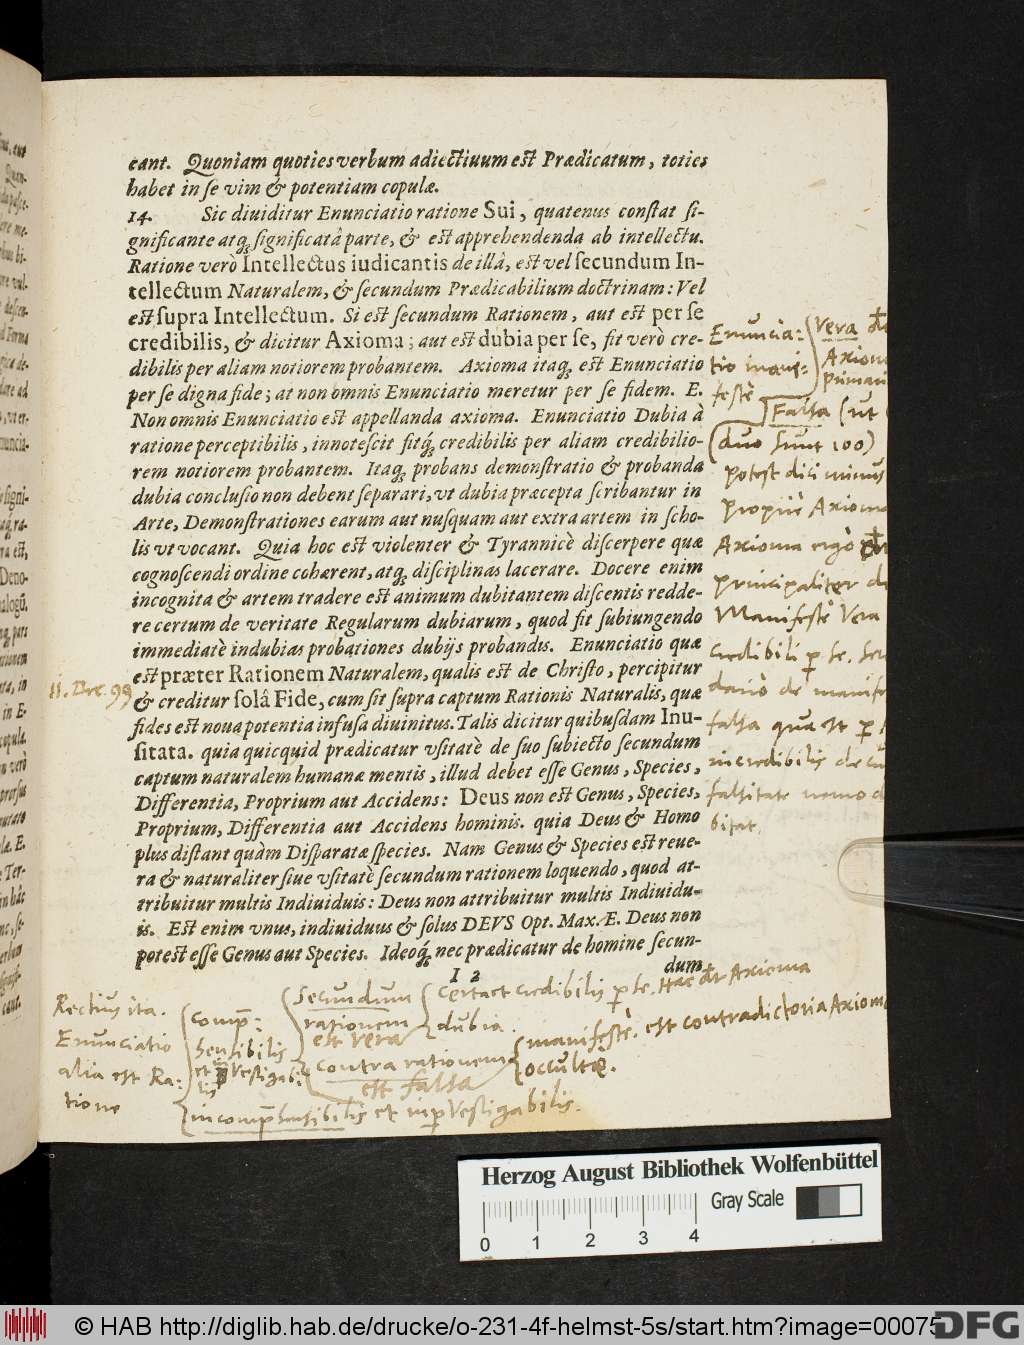 cant. Quoniam quoties verbum adiectiuum est Prædicatum, toties
habet in se vim & potentiam copulæ.
14. Sic diuiditur Enunciatio ratione Sui, quatenus constat si-
gnificante atq; significatâ parte, & est apprehendenda ab intellectu.
Ratione verò Intellectus iudicantis de illâ, est vel secundum In-
tellectum Naturalem, & secundum Prædicabilium doctrinam: Vel
est supra Intellectum. Si est secundum Rationem, aut est per se
credibilis, & dicitur Axioma; aut est dubia per se, fit verò cre-
dibilis per aliam notiorem probantem. Axioma itaq; est Enunciatio
per se digna fide; at non omnis Enunciatio meretur per se fidem. E.
Non omnis Enunciatio est appellanda axioma. Enunciatio Dubia à
ratione perceptibilis, innotescit fitq; credibilis per aliam credibilio-
rem notiorem probantem. Itaq; probans demonstratio & probanda
dubia conclusio non debent separari, vt dubia præcepta scribantur in
Arte, Demonstrationes earum aut nusquam aut extra artem in scho-
lis vt vocant. Quia hoc est violenter & Tyrannicè discerpere quæ
cognoscendi ordine cohærent, atq; disciplinas lacerare. Docere enim
incognita & artem tradere est animum dubitantem discentis redde-
re certum de veritate Regularum dubiarum, quod fit subiungendo
immediatè indubias probationes dubijs probandis. Enunciatio quæ
est præter Rationem Naturalem, qualis est de Christo, percipitur
& creditur solâ Fide, cum sit supra captum Rationis Naturalis, quæ
fides est noua potentia infusa diuinitus. Talis dicitur quibusdam Inu-
sitata. quia quicquid prædicatur vsitatè de suo subiecto secundum
captum naturalem humanæ mentis, illud debet esse Genus, Species,
Differentia, Proprium aut Accidens: Deus non est Genus, Species,
Proprium, Differentia aut Accidens hominis. quia Deus & Homo
plus distant quàm Disparatæ species. Nam Genus & Species est reue-
ra & naturaliter siue vsitatè secundum rationem loquendo, quod at-
tribuitur multis Indiuiduis: Deus non attribuitur multis Indiuidu-
is. Est enim vnus, indiuiduus & solus DEVS Opt. Max. Æ. Deus non
potest esse Genus aut Species. Ideoq; nec prædicatur de homine secun-
I 2 dum
Enuncia:
tio mani:
festè
Vera
Axiom
primari
Falsa (ut
(duo sunt 100)
potest dici minus
propriè Axiom
Axioma ergò
principaliter
Manifestè Vera
credibili p se.
de manife
falsa quæ est p
incredibilis de
falsitate nemo
bitat.
11. Dec. 99
Rectius ita.
Enunciatio
alia est Ra:
tione
comp:
hensibilis
et Vestigabi:
lis
incomphensibilis et inpVestigabilis.
Secundum
rationem
est vera
contra rationem
est falsa
credibilis p se. Axioma
dubia.
manifestè. est contradictoria Axiom
occultè.
Herzog August Bibliothek Wolfenbüttel
Gray Scale
0 1 2 3 4
© HAB http://diglib.hab.de/drucke/o-231-4f-helmst-5s/start.htm?image=00075
DFG